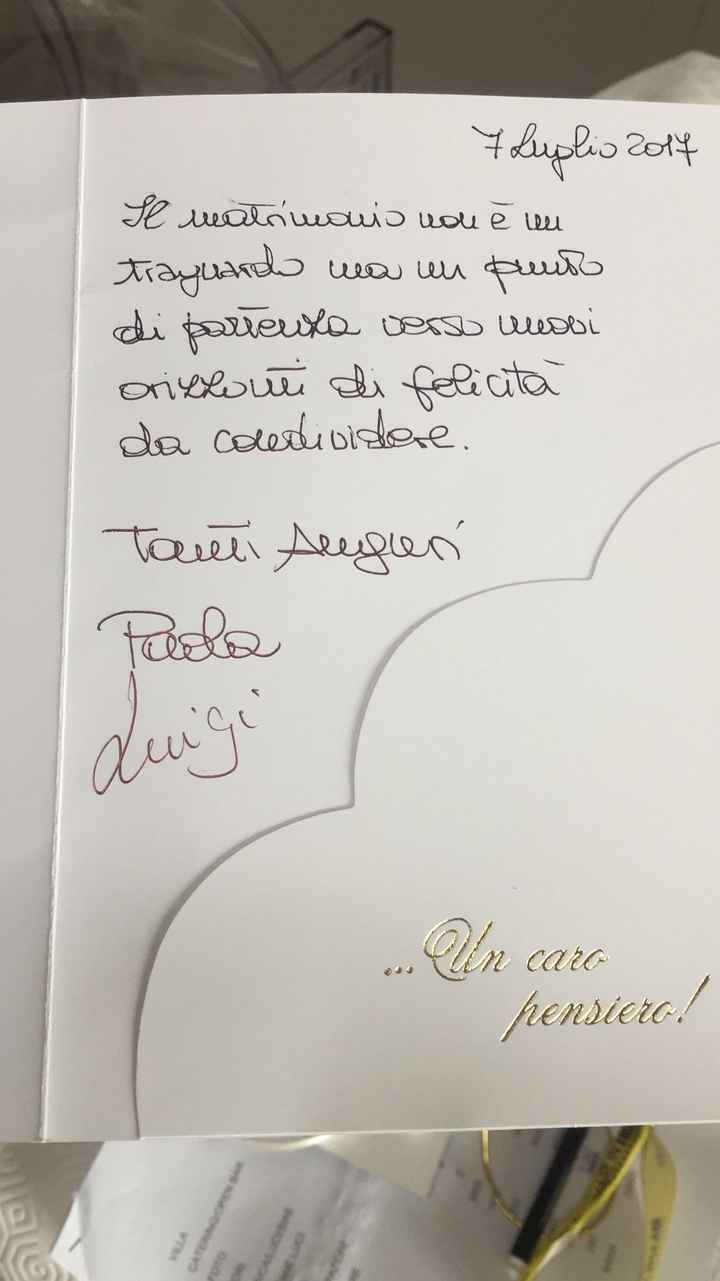 7 Luglio 2017
Il matrimonio non è un
traguardo ma un punto
di partenza verso nuovi
orizzonti di felicità
da condividere.
Tanti Auguri
Paola
Luigi
...Un caro
pensiero!
VILLA
CATERING/OPEN BAR
FOTO